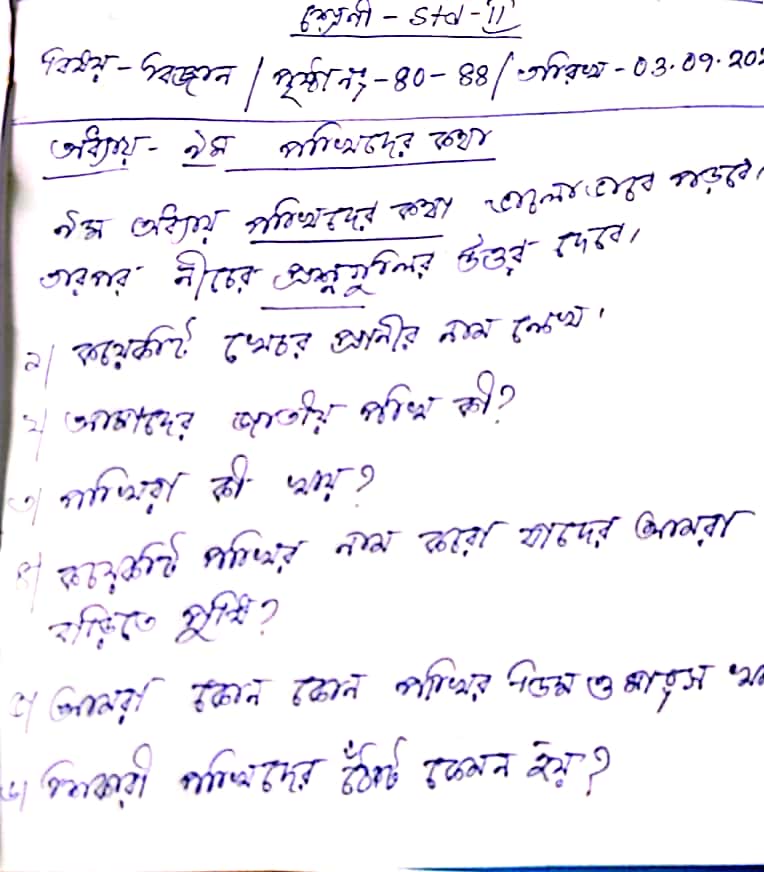 শ্রেণী - Std - II
বিষয় - বিজ্ঞান / পৃষ্ঠা নং - 80 - 88 / তারিখ - 03.09.202
অধ্যায় - ৯ম পাখিদের কথা
৯ম অধ্যায় পাখিদের কথা ভালো ভাবে পড়বে।
তারপর নীচের প্রশ্নগুলির উত্তর দেবে।
১/ কয়েকটি খেচর প্রাণীর নাম লেখ।
২/ আমাদের জাতীয় পাখি কী?
৩/ পাখিরা কী খায়?
৪/ কয়েকটি পাখির নাম করো যাদের আমরা
বাড়িতে পুষি?
৫/ আমরা কোন কোন পাখির ডিম ও মাংস
৬/ শিকারী পাখিদের ঠোঁট কেমন হয়?